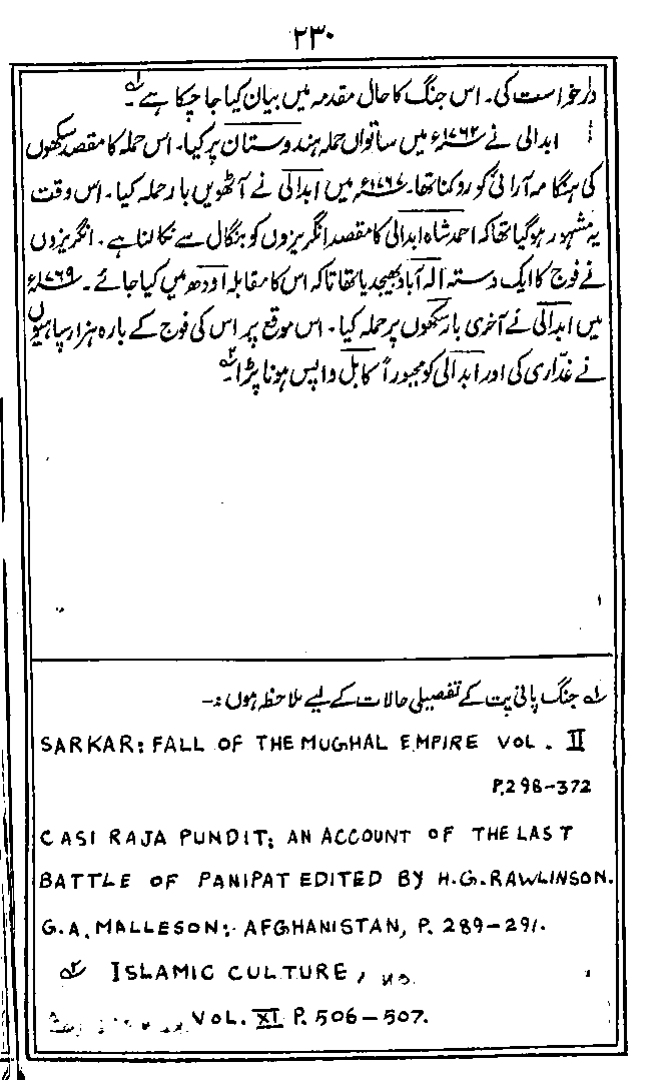 ۲۳۰
درخواست کی۔ اس جنگ کا حال مقدمہ میں بیان کیا جا چکا ہے ۱؎
ابدالی نے ۱۷۶۴ء میں ساتواں حملہ ہندوستان پر کیا۔ اس حملہ کا مقصد سکھوں
کی ہنگامہ آرائی کو روکنا تھا۔ ۱۷۶۷ء میں ابدالی نے آٹھویں بار حملہ کیا۔ اس وقت
یہ مشہور ہو گیا تھا کہ احمد شاہ ابدالی کا مقصد انگریزوں کو بنگال سے نکالنا ہے۔ انگریزوں
نے فوج کا ایک دستہ الہ آباد بھیجدیا تھا تاکہ اس کا مقابلہ اودھ میں کیا جائے۔ ۱۷۶۹ء
میں ابدالی نے آخری بار سکھوں پر حملہ کیا۔ اس موقع پر اس کی فوج کے بارہ ہزار سپاہیوں
نے غدّاری کی اور ابدالی کو مجبوراً کابل واپس ہونا پڑا ۲؎
۱؎ جنگ پانی پت کے تفصیلی حالات کے لیے ملاحظہ ہوں :-
SARKAR: FALL OF THE MUGHAL EMPIRE VOL. II
P.298-372
CASI RAJA PUNDIT; AN ACCOUNT OF THE LAST
BATTLE OF PANIPAT EDITED BY H.G.RAWLINSON.
G.A. MALLESON: AFGHANISTAN, P. 289-291.
۲؎ ISLAMIC CULTURE,
VOL. XI P. 506-507.